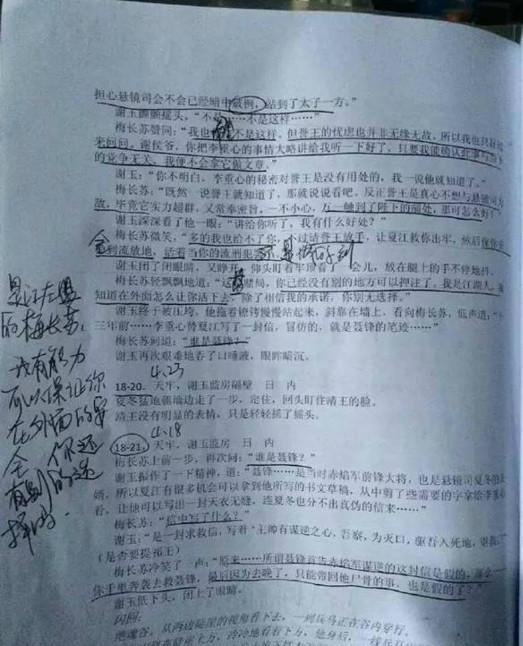 担心悬镜司会不会已经暗中破例，站到了太子一方。”
谢玉颤颤摇头，“不是……不是这样……”
梅长苏赞同：“我也 不是这样，但誉王的忧虑也并非无缘无故，所以我也只好
来问问。谢侯爷，你把李重心的事情大略讲给我听一下好了，只要我能确认此事与
的党争无关，我便不会拿它做文章。”
谢玉：“你不明白，李重心的秘密对誉王是没有用处的，我一说他就知道了。”
梅长苏：“既然一说誉王就知道了，那就说说看吧，反正誉王是真心不想与悬镜司为
敌，毕竟它实力超群，又常奉密旨，一不小心，万一触到了陛下的霉处，那可怎么好？”
谢玉深深看了他一眼：“讲给你听了，我有什么好处？”
梅长苏微笑，“多的我也给不了你，不过请誉王放手，让夏江救你出牢，然后
到流放地，活着当你的流刑犯
谢玉闭了闭眼睛，又睁开，仰头盯着牢顶看了一会儿，放在腿上的手不停地抖。
梅长苏轻飘飘地道：“这 赌局，你已经没有别的地方可以押注了。我是江湖人，
知道在外面怎么让你活下去 除了相信我的承诺，你别无选择。”
谢玉终于被压垮，他拖着镣铐慢慢站起来，斜靠在墙上，看向梅长苏，低声道：“十
三年前……李重心替夏江写了一封信，冒仿的，就是聂锋的笔迹……”
梅长苏问道：“谁是聂锋？”
谢玉再次艰难地吞了口唾液，眼眸暗沉。
4.23
18-20. 天牢，谢玉监房隔壁 日 内
夏冬猛地朝墙边走了一步，定住，回头盯住靖王的脸。
靖王没有明显的表情，只是轻轻摇了摇头。
4.18
18-21. 天牢，谢玉监房 日 内
梅长苏上前一步，再次问：“谁是聂锋？”
谢玉振作了一下精神，道：“聂锋……是当时赤焰军前锋大将，也是悬镜司夏冬的夫
婿，所以夏江有很多机会可以拿到他所写的书文草稿，从中剪了些需要的字拿给李重心
看，让他可以写出一封天衣无缝，连夏冬也分不出真伪的信来……”
梅长苏：“信中写了什么？”
谢玉：“是一封求救信，写着‘主帅有谋逆之心，吾察，为灭口，驱吾入死地，
（是否要提祁王）
梅长苏冷笑了一声：“原来……所谓聂锋首告赤焰军谋逆的这封信是假的，那么
你千里奔袭去救聂锋，最后因为去晚了，只能带回他尸骨的事，也是假的了？”
谢玉低下头，闭上了眼睛。
闪回：
绝魂谷，从两边陡崖的视角看下去，一列兵马正在谷内穿行。
是江左盟
的梅长苏
我有能力
可以保证你
在外面的安
全 你还
有别的选
择吗